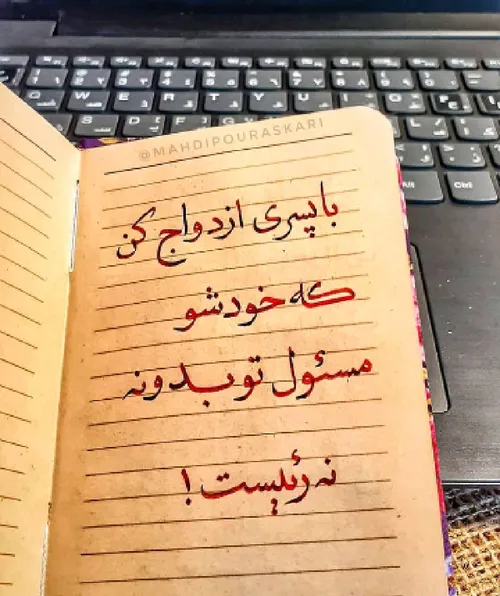 @MAHDIPOURASKARI
با پسری ازدواج کن
که خودشو
مسئول تو بدونه
نه رئیست!